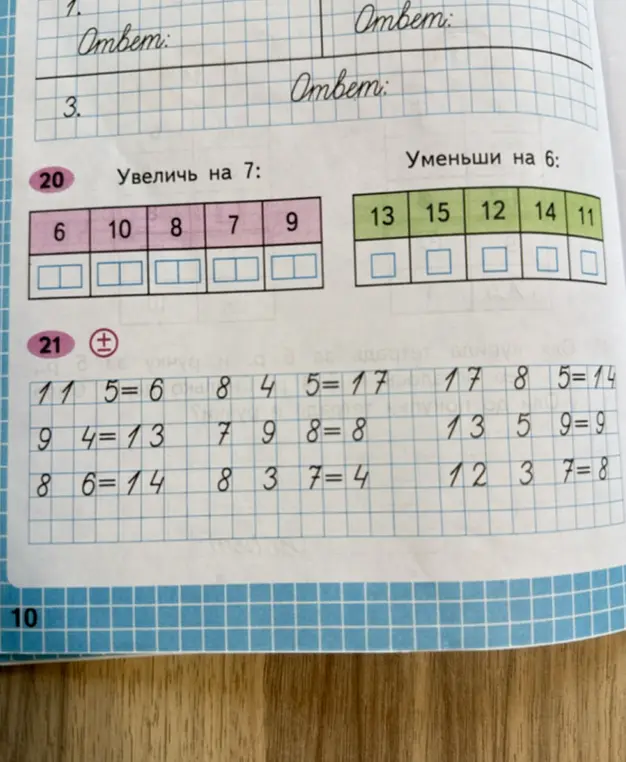 1.
Ответ: Ответ:
3. Ответ:
20 Увеличь на 7: Уменьши на 6:
6 10 8 7 9 13 15 12 14 11
21 ±
11 5=6 8 4 5=17 17 8 5=14
9 4=13 7 9 8=8 13 5 9=9
8 6=14 8 3 7=4 12 3 7=8
10